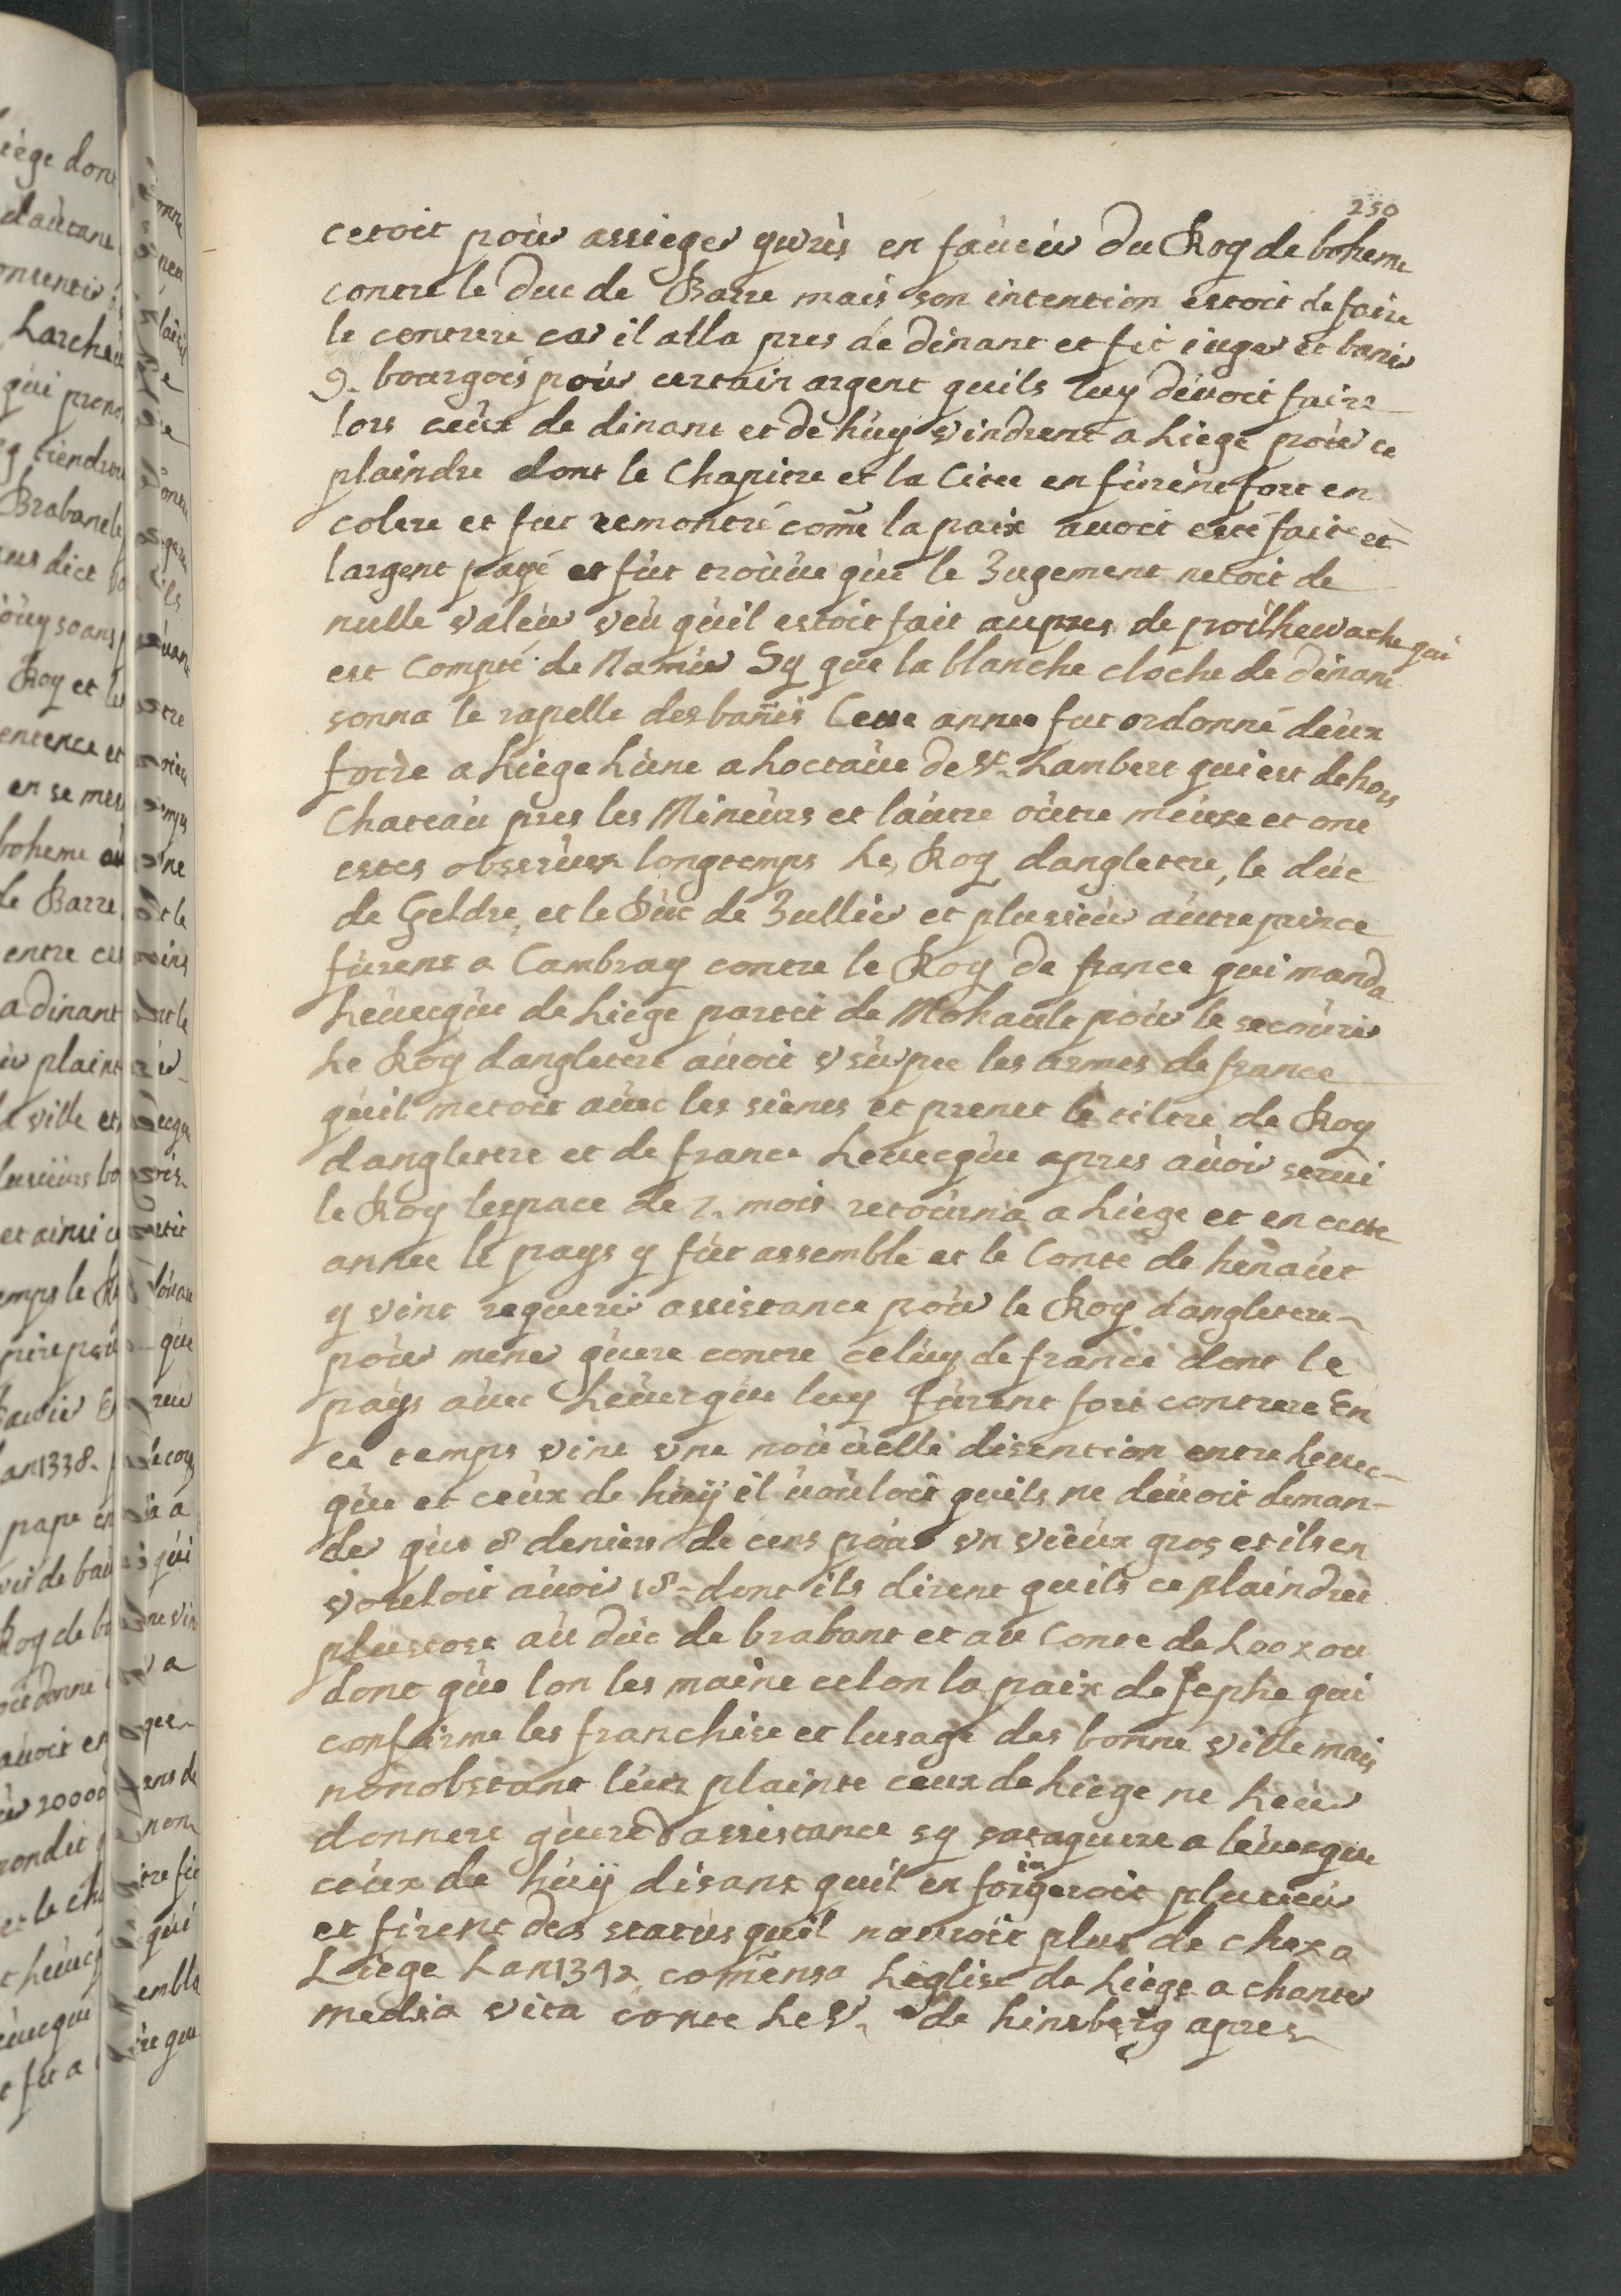 250
cetoit pour assieger yvrùs en faùeùr du Roy de boheme
contre le duc de Barre mais son intention estoit de faire
le contrere car il alla pres de dinant et fit iuger et banir
9. bourgois poùr certain argent quils luy deuoit faire
lors ceùx de dinant et de hùy vindrent a Liege poùr ce
plaindre dont le Chapitre et la Citee en fùrent fort en
colere et fut remontré come la paix auoit esté fait et
largent payé et fùt troùùe qùe le Jugement netoit de
nulle valeùr veù qùil estoit fait aupres de poilhewache qui
est Compté de Namùr Sy que la blanche cloche de dinant
sonna le rapelle des banis Cette annee fut ordonné deùx
foire a Liege Lùne a hoctaùe de St. Lambert qui est dehors
Chateaù pres les Mineùrs et laùtre oùtre meùse et ont
estes obserùer longtemps Le Roy dangletere, le dùc
de Geldre et le Dùc de Jullier et plusieùr aùtre prince
fùrent a Cambray contre le Roy de france qui manda
Leùecqùe de Liege partit de Mohault poùr le secoùrir
Le Roy dangletere aùoit vsùrpee les armes de france
qùil metoit aùec les sienes et prenet le tiltre de Roy
dangletere et de france Leùecqùe apres aùoir serui
le Roy lespace de 2. mois retoùrna a Liege et en cette
annee le pays y fùt assemble et le Conte de henaùt
y vint requerir assistance poùr le Roy dangletere
poùr mener gùere contre celùy de france dont le
pays aùec Leùecqùe luy fùrent fort contrere En
ce temps vint vne noùùelle disention entre Leuec-
qùe et ceùx de hùÿ il ùoùloit quils ne deùoit deman-
der qùe 8 deniers de cens poùr vn vieùx gros et ils en
voùloit aùoir 18 dont ils dirent quils ce plaindret
plustost aù dùc de brabant et au Conte de Looz ou
dont qùe lon les maine celon la paix de Jephe qui
confirme les franchise et lusage des bonne ville mais
nonobstant leùr plainte ceux de Liege ne Leùr
donnere gùere dassistance sy sataquere a leùecque
ceùx de hùÿ disant quil en foigneroit plusieùr
et firent des statùs quil naùroit plus de chez a
Liege Lan 1342 comensa Leglise de Liege a chanter
media vita contre Le Sr. de hinsberg apres